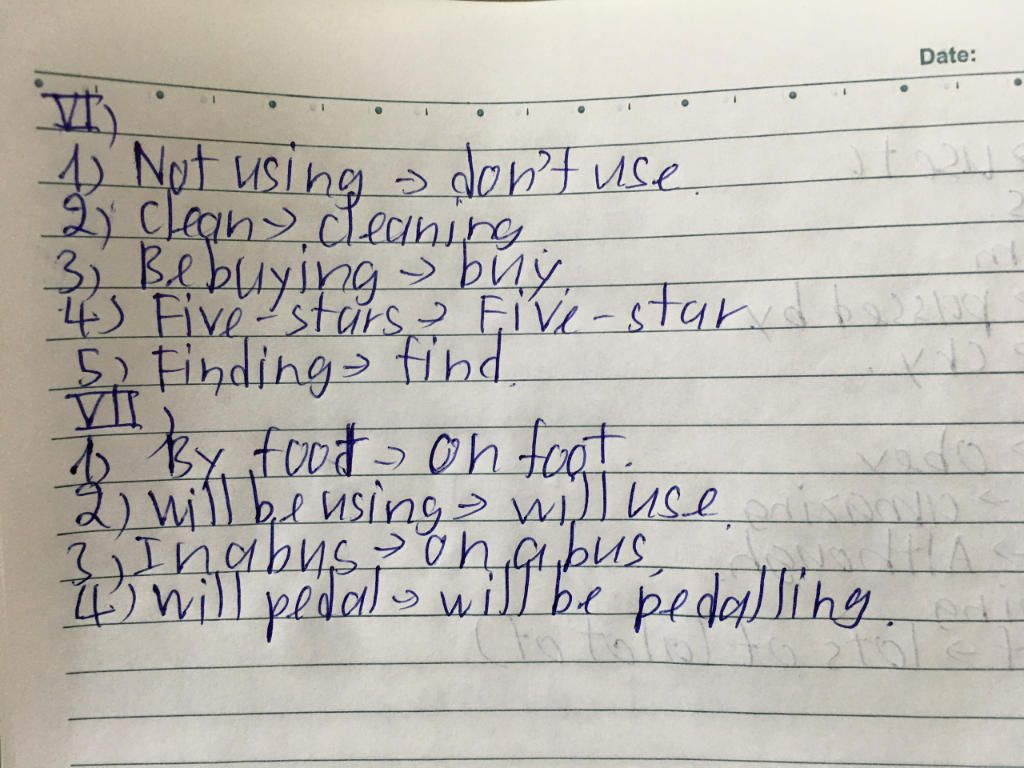 Date:
VI)
1) Not using → don't use.
2) Clean → cleaning
3) Be buying → buy.
4) Five-stars → Five-star.
5) Finding → find.
VII)
1) By foot → on foot.
2) Will be using → will use.
3) In a bus → on a bus.
4) Will pedal → will be pedalling.